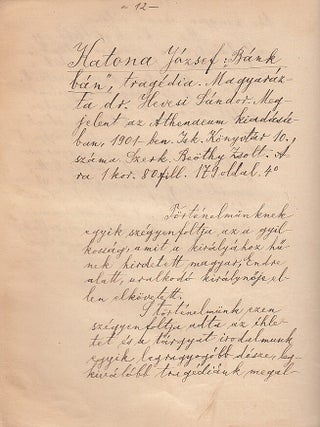 – 12 –
Katona József: „Bánk
bán", tragédia. Magyaráz-
ta dr. Hevesi Sándor. Meg-
jelent az Athenaeum kiadásá-
ban, 1901-ben. Isk. Könyvtár 10.,
száma. Szerk. Beöthy Zsolt. Á
ra 1 kor. 80 fill. 179 oldal. 4°
Történelmünknek
egyik szégyenfoltja az a gyil-
kosság, amit a királyához hű-
nek hirdetett magyar, Endre
alatt, uralkodó királynője el-
len elkövetett.
S történelmünk ezen
szégyenfoltja adta az ihle-
tet és a tárgyat irodalmunk
egyik legragyogóbb dísze, leg-
kiválóbb tragédiánk megal-